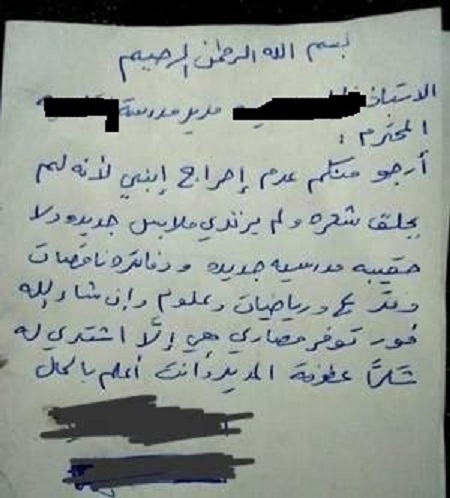 بسم الله الرحمن الرحيم
الاستاذ مدير مدرسة
المحترم :
أرجو منكم عدم إحراج إبني لأنه لم
يحلق شعره ولم يرتدي ملابس جديده ولا
حقيبه مدرسيه جديده ودفاتره ناقصات
دفتر ورياضيات وعلوم وإن شاء الله
فور توفر مصاري هي إلّا اشتري له
شكراً عطوفة المدير وأنت أعلم بالحال